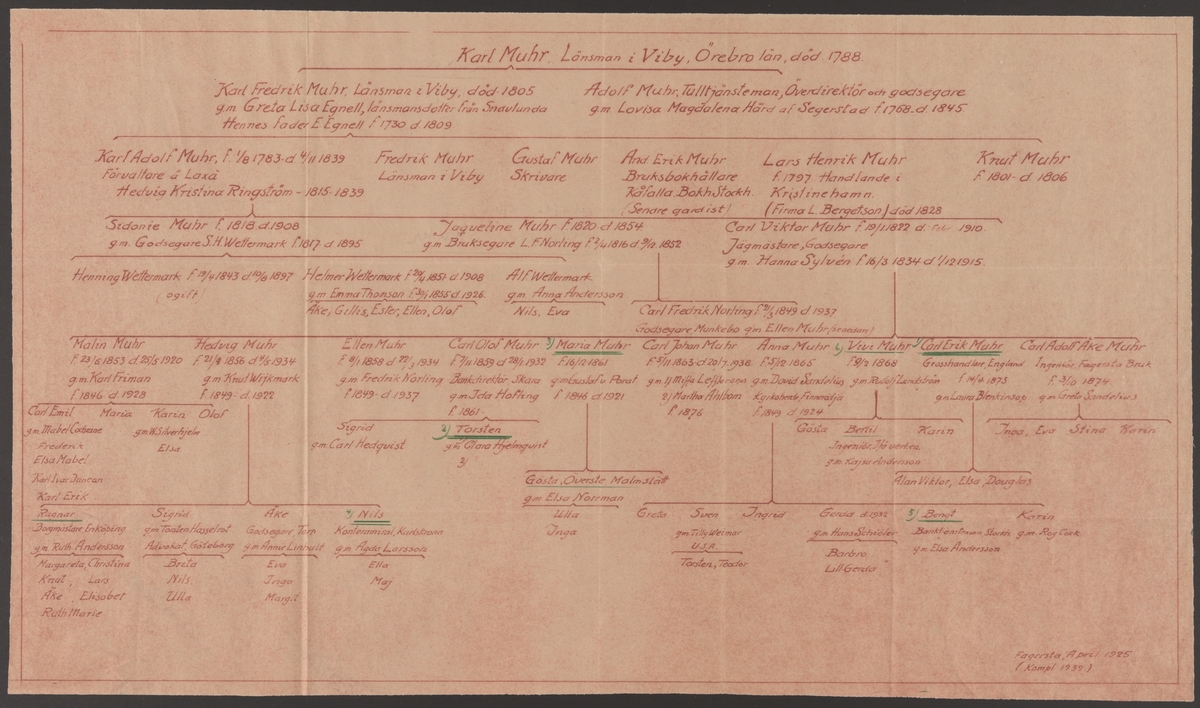 Karl Muhr, Länsman i Viby, Örebro län, död 1788.
Karl Fredrik Muhr, Länsman i Viby, död 1805
gm Greta Lisa Egnell, länsmansdotter från Snavlunda
Hennes fader E Egnell f 1730 d 1809
Adolf Muhr, Tulltjänsteman, Överdirektör och godsegare
gm. Lovisa Magdalena Hård af Segerstad f. 1768. d. 1845
Karl Adolf Muhr, f. 1/8 1783 d 4/11 1839
Förvaltare å Laxå
Hedvig Kristina Ringström - 1815-1839
Fredrik Muhr
Länsman i Viby
Gustaf Muhr
Skrivare
And Erik Muhr
Bruksbokhållare
Råfalla. Bokh Stockh.
(Senare gardist)
Lars Henrik Muhr
f. 1797 Handlande i
Kristinehamn.
(Firma L. Bergetson) död 1828
Knut Muhr
f. 1801- d. 1806
Sidonie Muhr f. 1818. d. 1908
gm. Godsegare S.H. Wettermark f. 1817 d 1895
Jaqueline Muhr f. 1820 d. 1854
gm Bruksegare L.F Norling f 2/4 1816 d 9/12 1852
Carl Viktor Muhr f 19/1 1822 d. 1910.
Jägmästare, Godsegare
gm. Hanna Sylvén f 16/3 1834 d 1/12 1915.
Henning Wettermark f 19/4 1843 d 10/8 1897
(ogift)
Helmer Wettermark 1851 d 1908
gm Emma Thomson 1855 d 1926.
Åke, Gillis, Ester, Ellen, Olof
Alf Wettermark
gm. Anna Andersson
Nils, Eva
Carl Fredrik Norling 1849 d 1937
Godsegare, Munkebo gm Ellen Muhr,
Malin Muhr
f 23/5 1853 d 25/5 1920
gm Karl Friman
f 1846 d 1928
Hedvig Muhr
f 21/8 1856 d 1934
gm Knut Wijkmark
f 1849 d 1922
Ellen Muhr
f 8/1 1858 d 1934
gm Fredrik Norling
f 1849- d 1937
Carl Olof Muhr
f 7/11 1859 d 28/1 1932
Bankdirektör Skara
gm Ida Hofling
f 1861
3) Maria Muhr
f 16/12 1861
gm Gustaf v Porat
f 1846 d 1921
Carl Johan Muhr
f 5/11 1863 d 20/7 1938.
gm. 1) Miffa Leffersson
2) Martha Ahlbom
f 1876
Anna Muhr
f 5/12 1865
gm David Sandelius
Kyrkoherde,
f 1849 d 1924
Vivi Muhr
f 8/2 1868
gm Rudolf Lindström
Carl Erik Muhr
Grosshandlare, England
f 14/4 1873
gm Laura Blenkinsop
Carl Adolf Åke Muhr
Ingeniör, Fagersta Bruk
f 3/3 1874
gm Greta Sandelius
Carl Emil
gm. Mabel Cochrane
Frederik
Elsa Mabel
Karl Ivar Duncan
Karl Erik
Maria
Karin
gm W. Silverhjelm
Elsa
Olof
Sigrid
gm Carl Hedquist
2) Torsten
gm Clara Hjelmquist
3)
Gösta
Bertil
Ingeniör,
gm Kajsa Andersson
Karin
Inga, Eva Stina Karin
Gösta, Överste Malmslätt
gm Elsa Norrman
Ulla
Inga
Alan Viktor, Elsa, Douglas
Ragnar
Domprostare Enköping
gm. Ruth Andersson
Margareta, Christina
Knut, Lars
Åke, Elisabet
Ruth Marie
Sigrid
gm Torsten Hasselrot
Advokat, Göteborg
Brita
Nils
Ulla
Åke
Godsegare Turn
gm Annie Linhult
Eva
Inga
Margit
Nils
Konteramiral, Karlskrona
gm Agda Larsson
Ella
Maj
Greta
Sven
gm Tilly Weimar
U.S.A.
Torsten, Teodor
Ingrid
Gerda d 1932
gm Hans Schröder
Barbro
Lill-Gerda
5) Bengt
Banktjänsteman, Stockh
gm Elsa Andersson
Karin
gm. Roy Cock
Fagersta, April 1925
(Kompl 1939.)